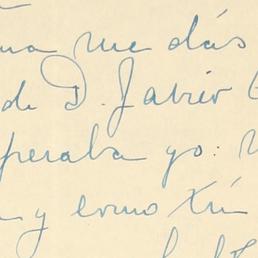 ña me dás
de D. Javier
peraba yo:
y como Xún